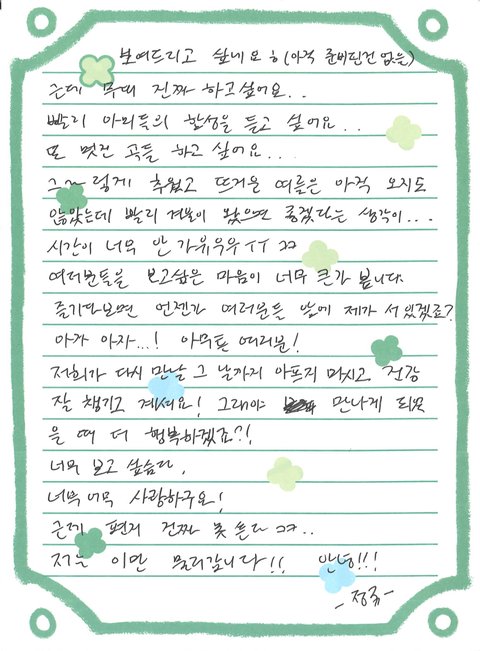 보여드리고 싶네요ㅎ (아직 준비된건 없음)
근데 무대 진짜 하고싶어요..
빨리 아미들의 함성을 듣고 싶어요..
또 멋진 곡들 하고 싶어요...
그~렇게 춥웠고 뜨거운 여름은 아직 오지도
않았는데 빨리 겨울이 왔으면 좋겠다는 생각이...
시간이 너무 안 가유우우ㅜㅜ ㅋㅋ
여러분들을 보고싶은 마음이 너무 큰가 봅니다.
즐기다보면 언젠가 여러분들 앞에 제가 서 있겠죠?
아자 아자...! 아무튼 여러분!
저희가 다시 만날 그 날까지 아프지 마시고 건강
잘 챙기고 계세요! 그래야 만나게 되었
을 때 더 행복하겠죠?!
너무 보고 싶습다,
너무너무 사랑하구요!
근데 편지 진짜 못 쓴다 ㅋㅋ..
저는 이만 물러갑니다!! 안녕!!!
-정국-